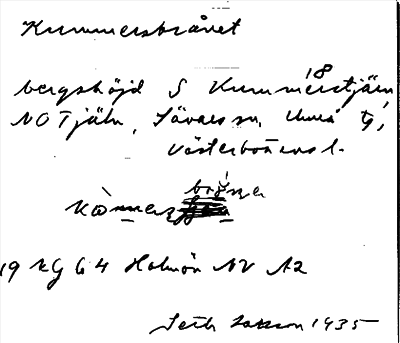 Kummersbrånet
bergshöjd S Kummerstjärn
18
NO Tjäln, Sävar sn, Umeå tg,
Västerbottens l.
brå̀nez
kòmmez
19 kg 64 Holmön NV A2
Seth Larsson 1935